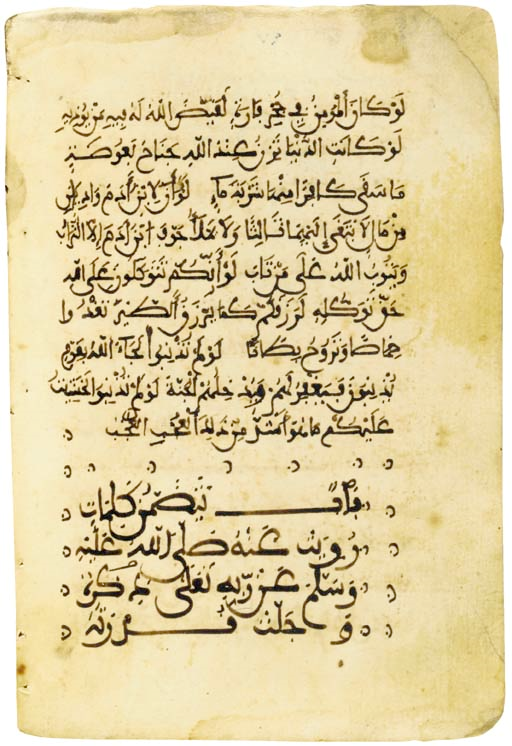 لو كان المؤمن في جحر فارة لقيض الله له فيه من يوذيه
لو كانت الدنيا تزن عند الله جناح بعوضة
ما سقى كافرا منها شربة ماء لو أن لابن ءادم واديين
من مال لابتغى إليهما ثالثا ولا يملأ جوف ابن ءادم إلا التراب
ويتوب الله على من تاب لو أنكم تتوكلون على الله
حق توكله لرزقكم كما يرزق الطير تغدوا
خماصا وتروح بطانا لو لم تذنبوا لجاء الله بقوم
يذنبون فيغفر لهم ويدخلهم الجنة لو لم تذنبوا لخشيت
عليكم ما هو أشد من ذلك العجب العجب
باب يتضمن كلمات
رويت عنه صلى الله عليه
وسلم عن ربه تعلى ذكره
وجلت قدرته